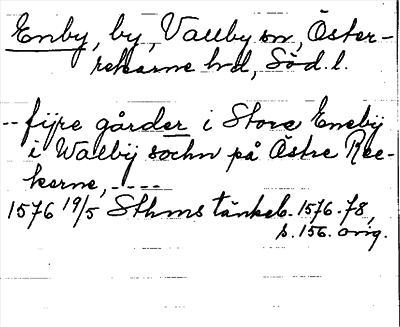 Enby, by, Vallby sn, Öster-
rekarne hd, Söd. l.
-- fijre gårder i Store Eneby
i Walbij sochn på Östre Ree-
karne, - - - -
1576 19/5 Sthms tänkeb. 1576-78,
s. 156. orig.